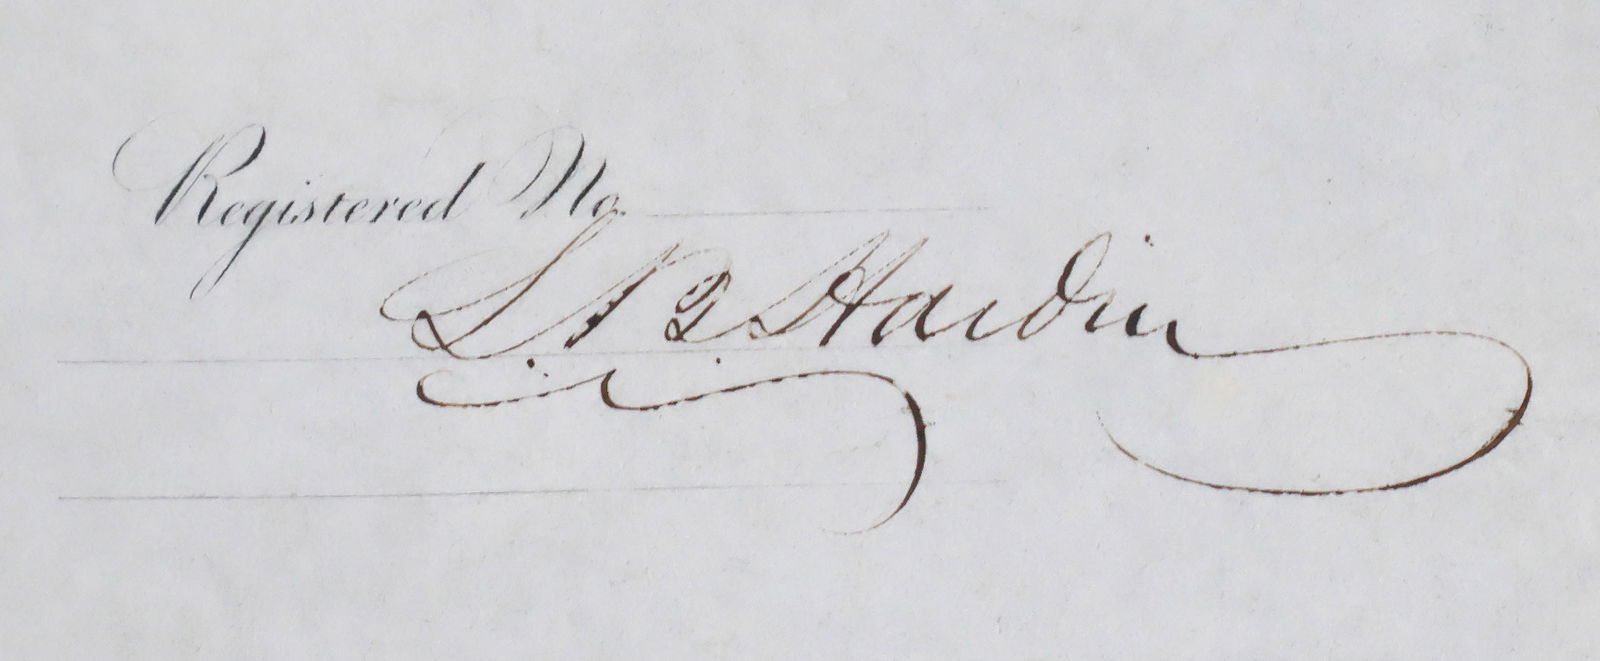 Registered No.
L. B. Hardin